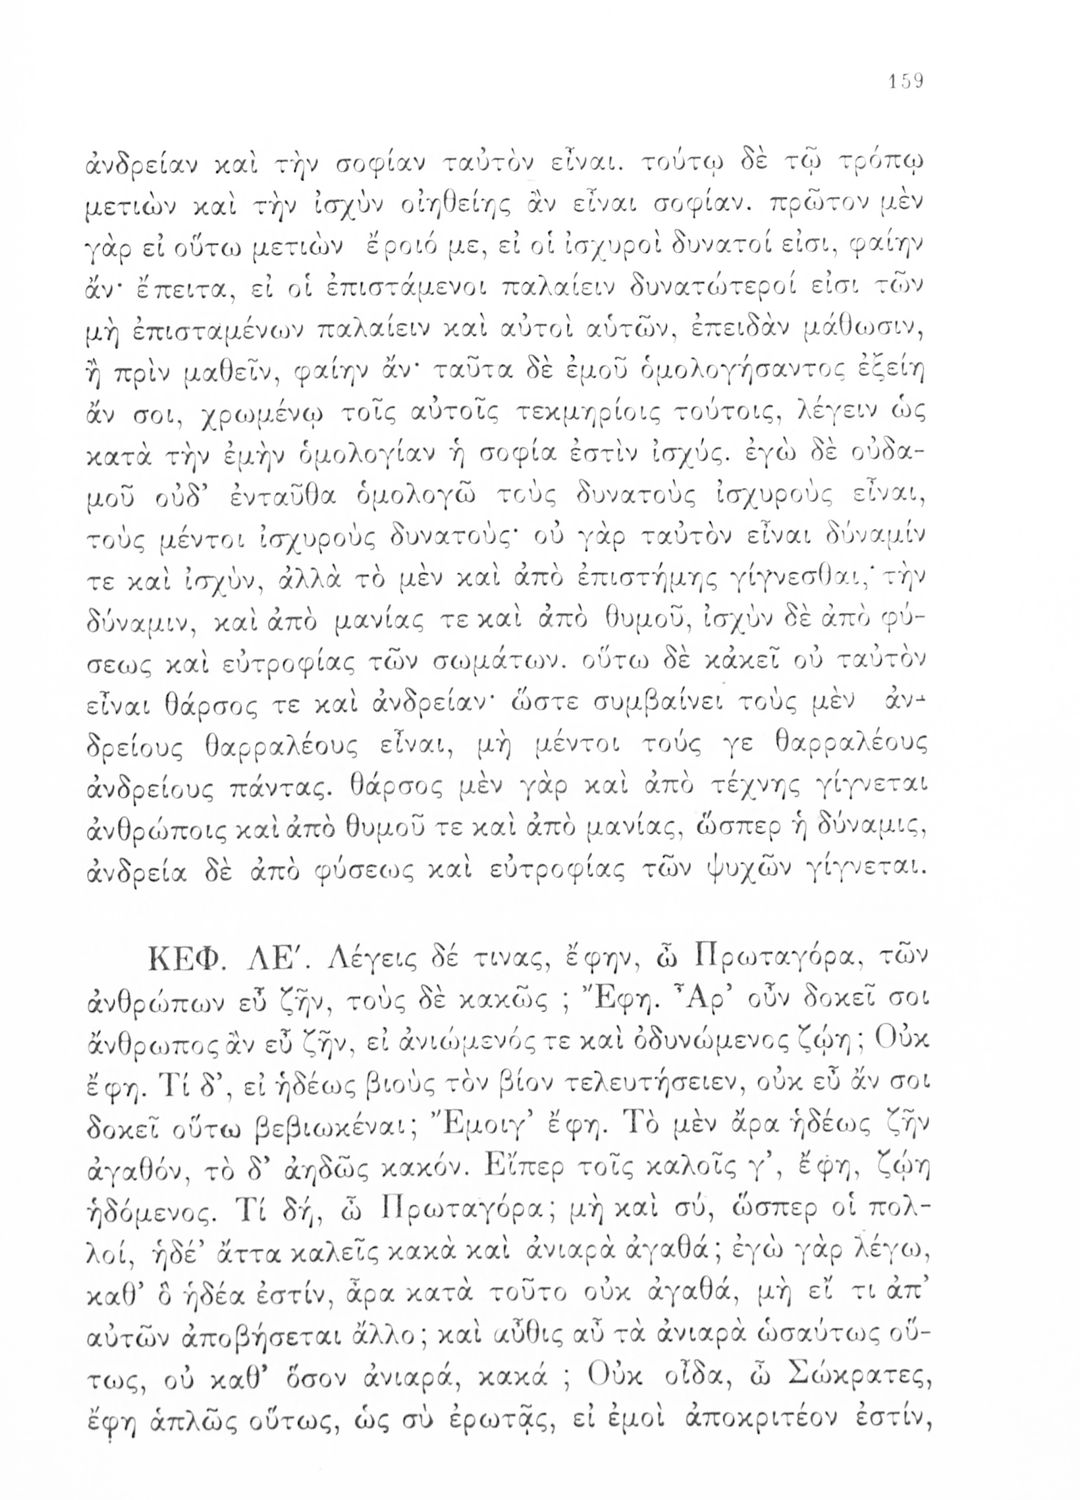 159
ἀνδρείαν καὶ τὴν σοφίαν ταὐτὸν εἶναι. τούτῳ δὲ τῷ τρόπῳ
μετιὼν καὶ τὴν ἰσχὺν οἰηθείης ἂν εἶναι σοφίαν. πρῶτον μὲν
γὰρ εἰ οὕτω μετιὼν ἔροιό με, εἰ οἱ ἰσχυροὶ δυνατοί εἰσι, φαίην
ἄν· ἔπειτα, εἰ οἱ ἐπιστάμενοι παλαίειν δυνατώτεροί εἰσι τῶν
μὴ ἐπισταμένων παλαίειν καὶ αὐτοὶ αὑτῶν, ἐπειδὰν μάθωσιν,
ἢ πρὶν μαθεῖν, φαίην ἄν· ταῦτα δὲ ἐμοῦ ὁμολογήσαντος ἐξείη
ἄν σοι, χρωμένῳ τοῖς αὐτοῖς τεκμηρίοις τούτοις, λέγειν ὡς
κατὰ τὴν ἐμὴν ὁμολογίαν ἡ σοφία ἐστὶν ἰσχύς. ἐγὼ δὲ οὐδα-
μοῦ οὐδ’ ἐνταῦθα ὁμολογῶ τοὺς δυνατοὺς ἰσχυροὺς εἶναι,
τοὺς μέντοι ἰσχυροὺς δυνατούς· οὐ γὰρ ταὐτὸν εἶναι δύναμίν
τε καὶ ἰσχύν, ἀλλὰ τὸ μὲν καὶ ἀπὸ ἐπιστήμης γίγνεσθαι, τὴν
δύναμιν, καὶ ἀπὸ μανίας τε καὶ ἀπὸ θυμοῦ, ἰσχὺν δὲ ἀπὸ φύ-
σεως καὶ εὐτροφίας τῶν σωμάτων. οὕτω δὲ κἀκεῖ οὐ ταὐτὸν
εἶναι θάρσος τε καὶ ἀνδρείαν· ὥστε συμβαίνει τοὺς μὲν ἀν-
δρείους θαρραλέους εἶναι, μὴ μέντοι τούς γε θαρραλέους
ἀνδρείους πάντας. θάρσος μὲν γὰρ καὶ ἀπὸ τέχνης γίγνεται
ἀνθρώποις καὶ ἀπὸ θυμοῦ τε καὶ ἀπὸ μανίας, ὥσπερ ἡ δύναμις,
ἀνδρεία δὲ ἀπὸ φύσεως καὶ εὐτροφίας τῶν ψυχῶν γίγνεται.
ΚΕΦ. ΛΕ'. Λέγεις δέ τινας, ἔφην, ὦ Πρωταγόρα, τῶν
ἀνθρώπων εὖ ζῆν, τοὺς δὲ κακῶς ; Ἔφη. Ἆρ’ οὖν δοκεῖ σοι
ἄνθρωπος ἂν εὖ ζῆν, εἰ ἀνιώμενός τε καὶ ὀδυνώμενος ζῴη ; Οὐκ
ἔφη. Τί δ’, εἰ ἡδέως βιοὺς τὸν βίον τελευτήσειεν, οὐκ εὖ ἄν σοι
δοκεῖ οὕτω βεβιωκέναι ; Ἔμοιγ’ ἔφη. Τὸ μὲν ἄρα ἡδέως ζῆν
ἀγαθόν, τὸ δ’ ἀηδῶς κακόν. Εἴπερ τοῖς καλοῖς γ’, ἔφη, ζῴη
ἡδόμενος. Τί δή, ὦ Πρωταγόρα ; μὴ καὶ σύ, ὥσπερ οἱ πολ-
λοί, ἡδέ’ ἄττα καλεῖς κακὰ καὶ ἀνιαρὰ ἀγαθά ; ἐγὼ γὰρ λέγω,
καθ’ ὃ ἡδέα ἐστίν, ἆρα κατὰ τοῦτο οὐκ ἀγαθά, μὴ εἴ τι ἀπ’
αὐτῶν ἀποβήσεται ἄλλο ; καὶ αὖθις αὖ τὰ ἀνιαρὰ ὡσαύτως οὕ-
τως, οὐ καθ’ ὅσον ἀνιαρά, κακά ; Οὐκ οἶδα, ὦ Σώκρατες,
ἔφη ἁπλῶς οὕτως, ὡς σὺ ἐρωτᾷς, εἰ ἐμοὶ ἀποκριτέον ἐστίν,